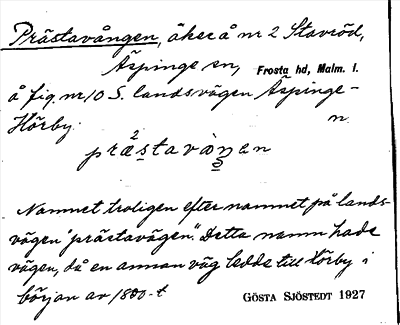 Prästavången, åker å nr 2 Stavröd,
Äspinge sn, Frosta hd, Malm. l.
å fig. nr 10 S. landsvägen Äspinge-
Hörby. n.
præ²stavàŋen
Namnet troligen efter namnet på lands-
vägen "prästavägen". Detta namn hade
vägen, då en annan väg ledde till Hörby i
början av 1800-t
GÖSTA SJÖSTEDT 1927